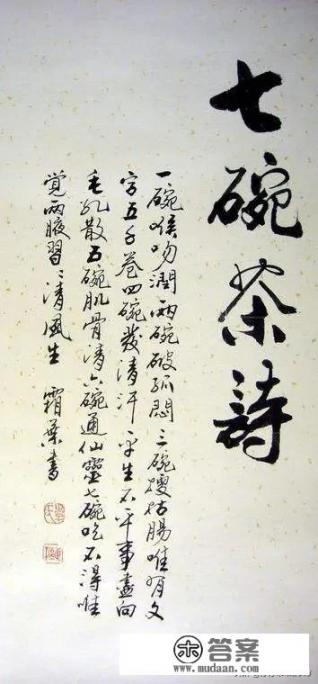 七碗茶詩
一碗喉吻潤兩碗破孤悶三碗搜枯腸唯有文
字五千卷四碗發清汗平生不平事盡向
毛孔散五碗肌骨清六碗通仙靈七碗吃不得唯
覺兩腋習〻清風生 霜葉書
答案
www.mudaan.com